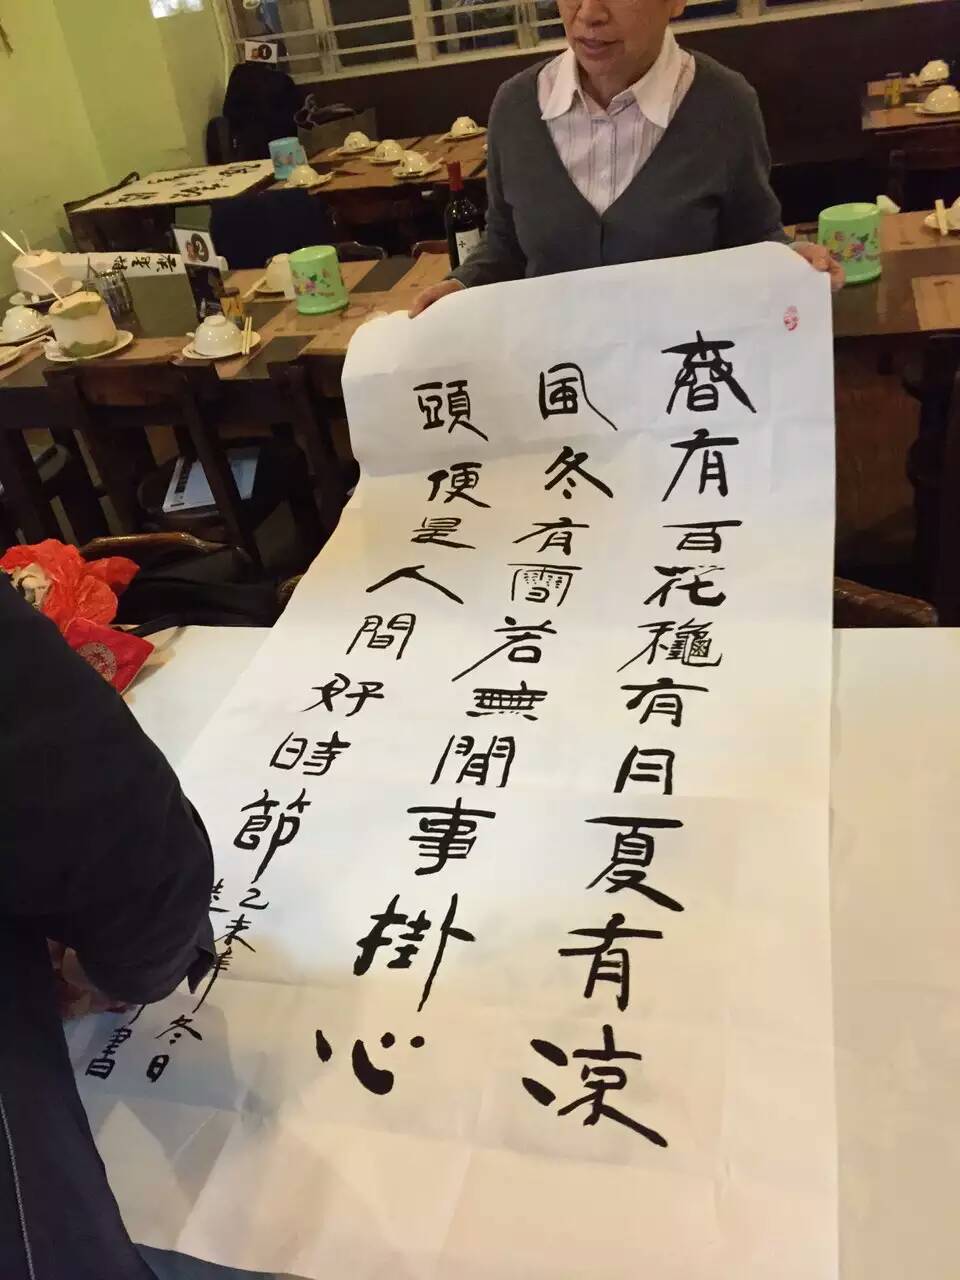 春有百花龝有月夏有涼
風冬有雪若無閒事掛心
頭便是人間好時節
乙未年冬日
書